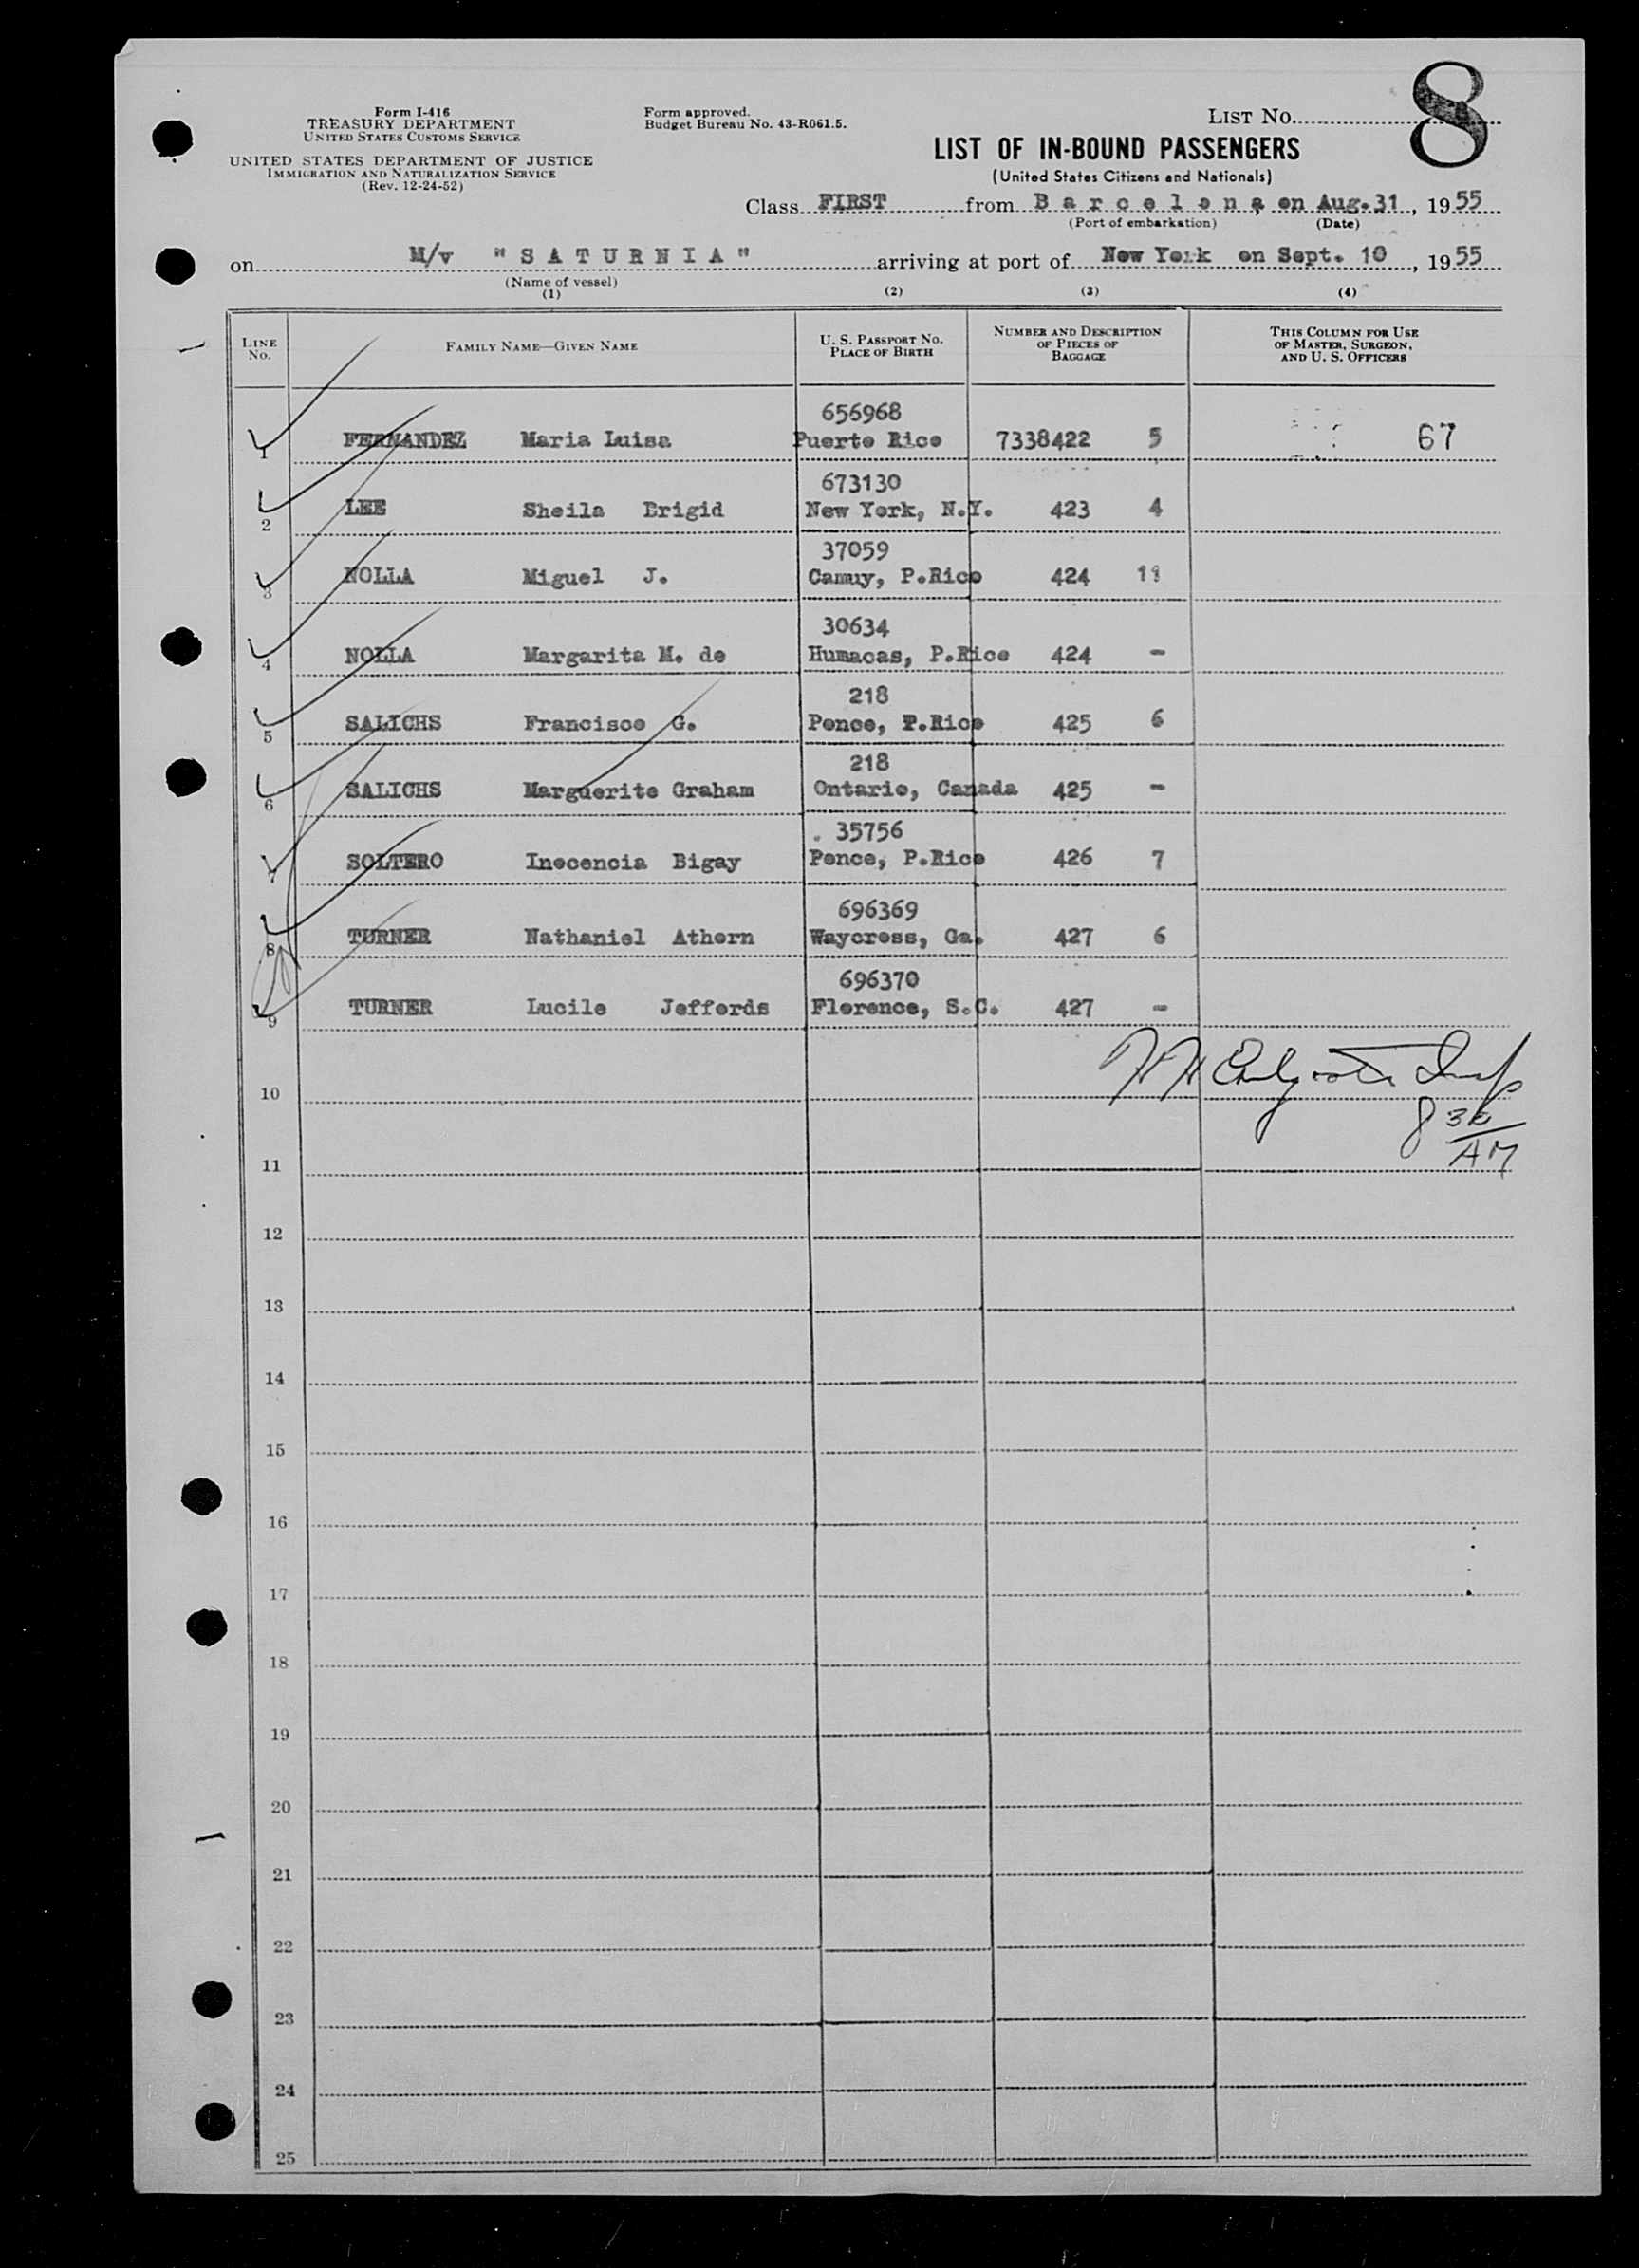 Form I-416
TREASURY DEPARTMENT
UNITED STATES CUSTOMS SERVICE
UNITED STATES DEPARTMENT OF JUSTICE
IMMIGRATION AND NATURALIZATION SERVICE
(Rev. 12-24-52)
Form approved.
Budget Bureau No. 43-R061.5.
LIST No. 8
LIST OF IN-BOUND PASSENGERS
(United States Citizens and Nationals)
Class FIRST from Barcelona, on Aug.31, 1955
(Port of embarkation) (Date)
on M/v "SATURNIA" arriving at port of New York on Sept. 10, 1955
(Name of vessel)
(1) (2) (3) (4)
LINE No. FAMILY NAME—GIVEN NAME U. S. PASSPORT No. PLACE OF BIRTH NUMBER AND DESCRIPTION OF PIECES OF BAGGAGE THIS COLUMN FOR USE OF MASTER, SURGEON, AND U. S. OFFICERS
656968
1 FERNANDEZ Maria Luisa Puerto Rico 7338422 5 67
673130
2 LEE Sheila Brigid New York, N.Y. 423 4
37059
3 NOLLA Miguel J. Camuy, P.Rico 424
30634
4 NOLLA Margarita M. de Humacas, P.Rico 424 -
218
5 SALICHS Francisco G. Ponce, P.Rico 425 6
218
6 SALICHS Marguerite Graham Ontario, Canada 425 -
35756
7 SOLTERO Inocencia Bigay Ponce, P.Rico 426 7
696369
8 TURNER Nathaniel Athorn Waycross, Ga. 427 6
696370
9 TURNER Lucile Jeffords Florence, S.C. 427 -
10
8 30
AM
11
12
13
14
15
16
17
18
19
20
21
22
23
24
25